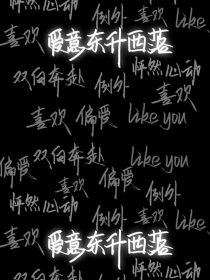 倒外 怦然心动
喜欢 like
爱意东升西落
双向奔赴 怦然心动
倒外 喜欢
喜欢 偏爱 like you
偏爱 双向奔赴 like you
喜欢 偏爱 倒外
怦然心动 倒外 喜欢
喜欢 like
爱意东升西落